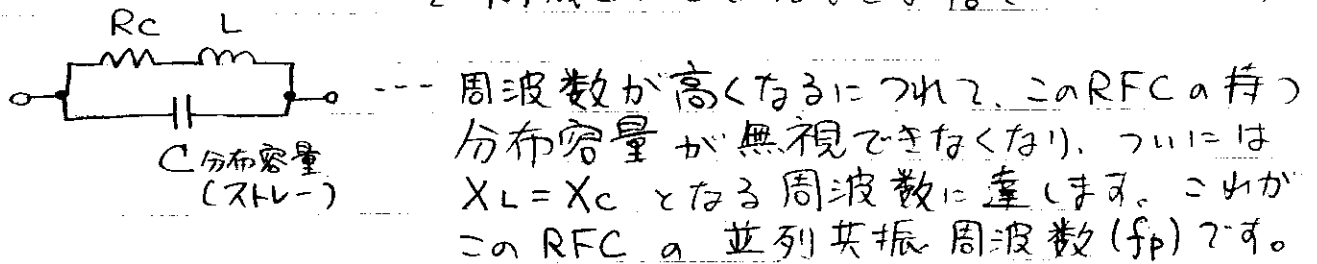 Rc L
C 分布容量
(ストレー)
--- 周波数が高くなるにつれて、このRFCの持つ
分布容量が無視できなくなり、ついには
XL=Xc となる周波数に達します。これが
このRFCの並列共振周波数(fp)です。